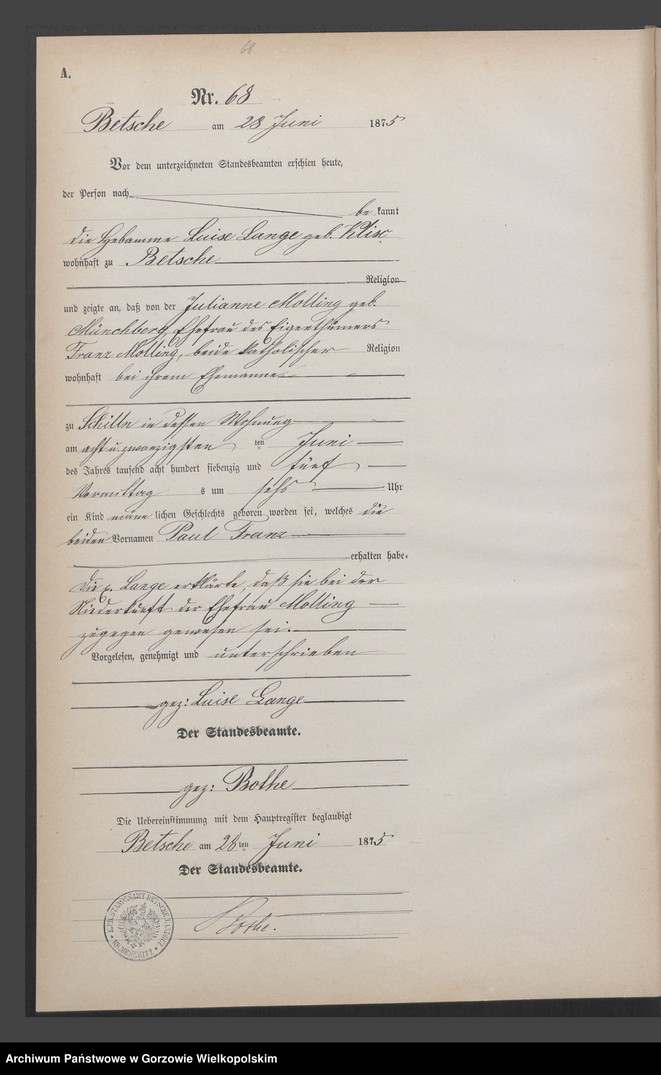 68
A.
Nr. 68
Betsche am 28 Juni 1875
Vor dem unterzeichneten Standesbeamten erschien heute,
der Person nach
be kannt
die Hebamme Luise Lange geb.
wohnhaft zu Betsche
Religion
und zeigte an, daß von der Julianne Molling geb.
Münchberg, Ehefrau des Eigenthümers
Franz Molling, beide katholischer Religion
wohnhaft bei ihrem Ehemanne
zu Schilln in dessen Wohnung
am acht u zwanzigsten ten Juni
des Jahres tausend acht hundert siebenzig und fünf
Vormittag s um sechs Uhr
ein Kind männ lichen Geschlechts geboren worden sei, welches die
beiden Vornamen Paul Franz
erhalten habe.
Die p. Lange erklärte, daß sie bei der
Niederkunft der Ehefrau Molling
zugegen gewesen sei.
Vorgelesen, genehmigt und unterschrieben
gez: Luise Lange
Der Standesbeamte.
gez: Bothe
Die Uebereinstimmung mit dem Hauptregister beglaubigt
Betsche am 28 ten Juni 1875
Der Standesbeamte.
Bothe.
Archiwum Państwowe w Gorzowie Wielkopolskim